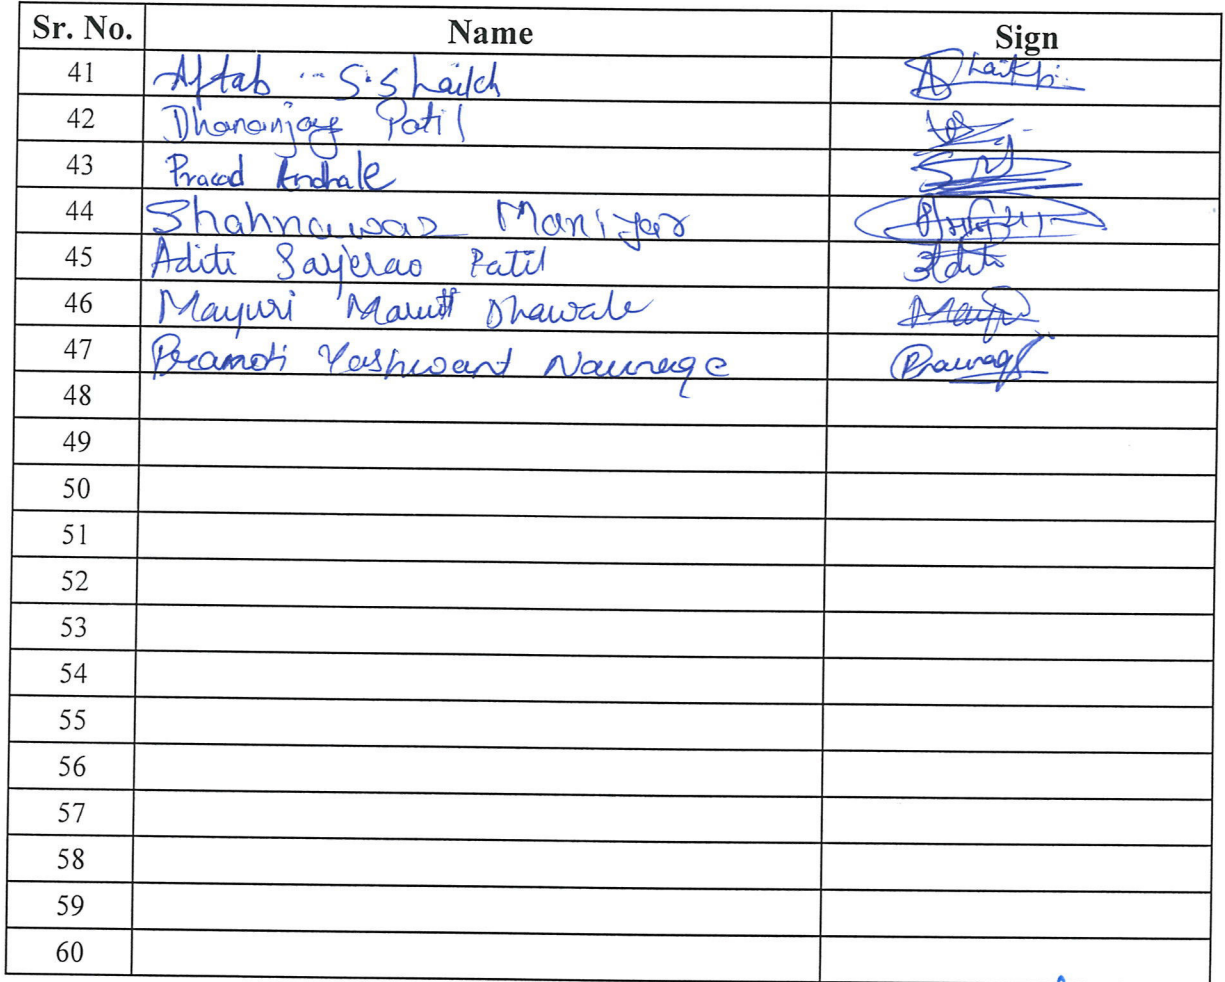 Sr. No. Name Sign
41 Aftab S. Shaikh Shaikh
42 Dhananjay Patil
43 Prasad Andhale
44 Shahnawaz Maniyar
45 Aditi Sarjerao Patil Aditi
46 Mayuri Maruti Dhawale
47 Yashwant
48
49
50
51
52
53
54
55
56
57
58
59
60